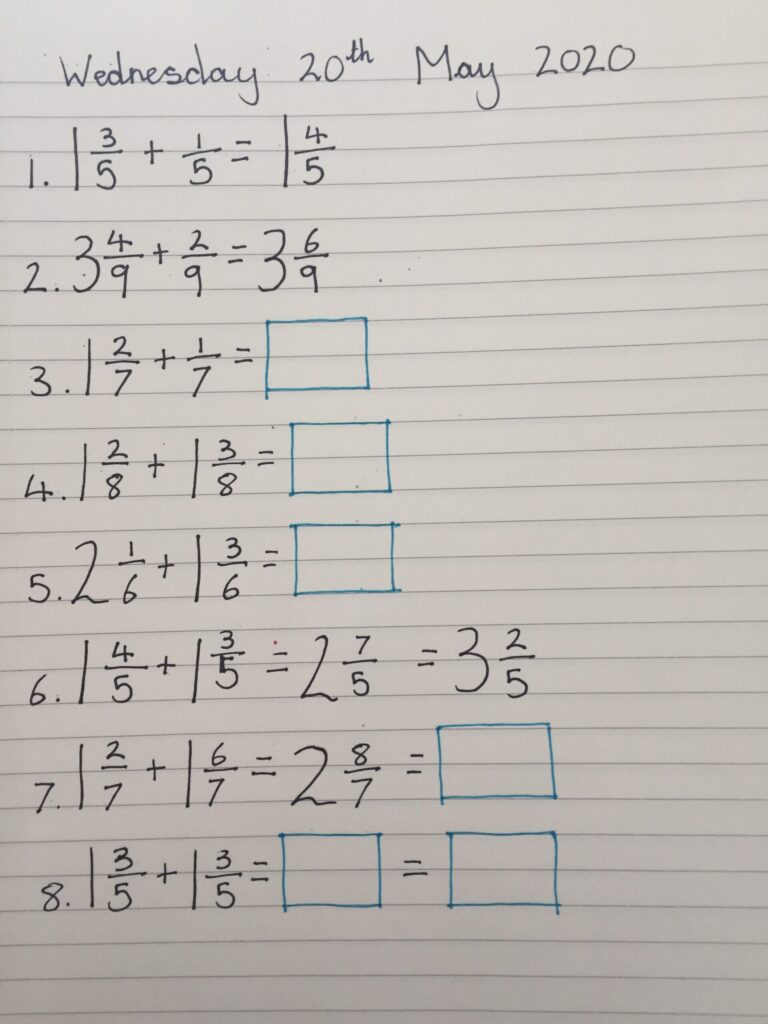 Wednesday 20th May 2020
1. 1 3/5 + 1/5 = 1 4/5
2. 3 4/9 + 2/9 = 3 6/9
3. 1 2/7 + 1/7 =
4. 1 2/8 + 1 3/8 =
5. 2 1/6 + 1 3/6 =
6. 1 4/5 + 1 3/5 = 2 7/5 = 3 2/5
7. 1 2/7 + 1 6/7 = 2 8/7 =
8. 1 3/5 + 1 3/5 = =